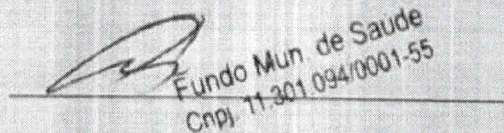 Fundo Mun. de Saude
Cnpj. 11.301.094/0001-55